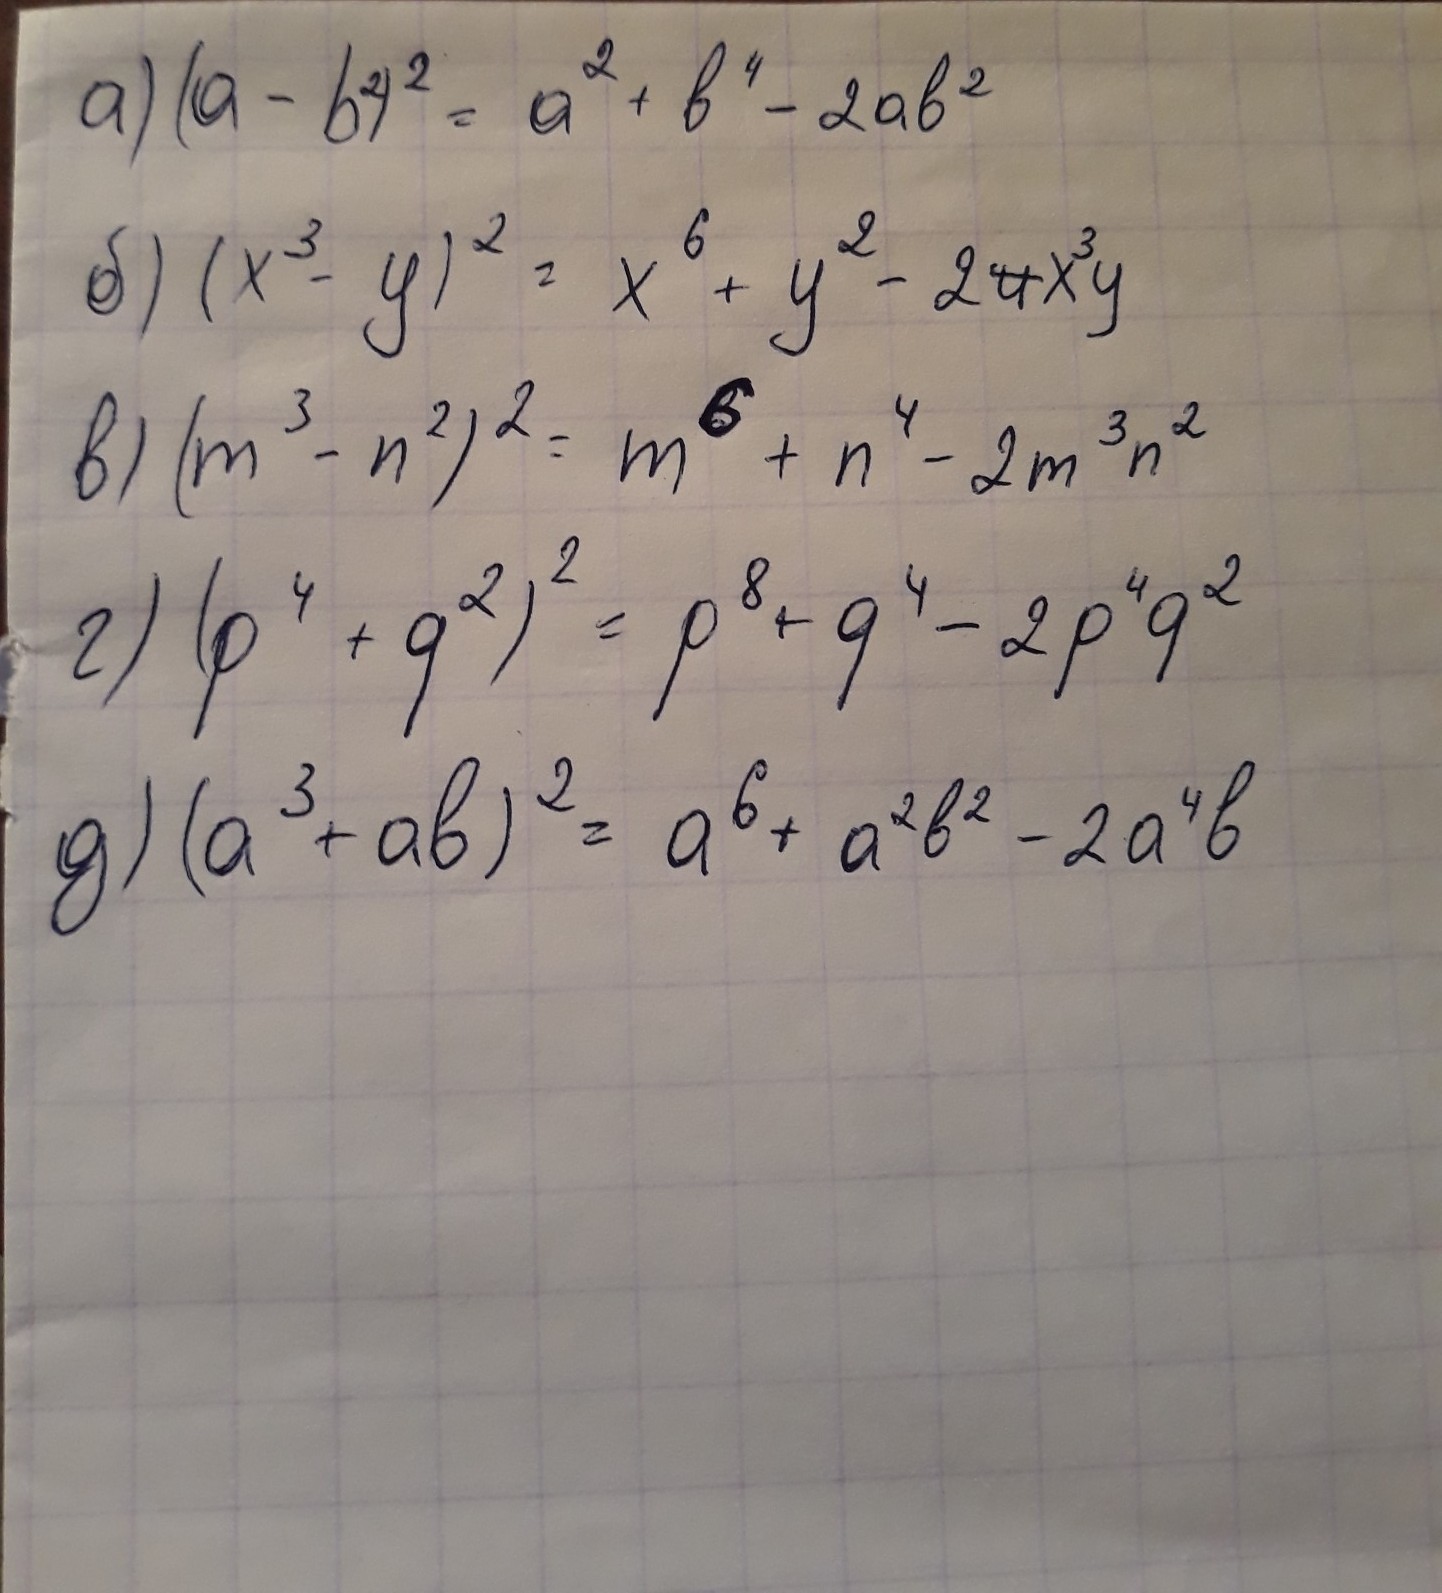 а) (a - b²)² = a² + b⁴ - 2ab²
б) (x³ - y)² = x⁶ + y² - 2x³y
в) (m³ - n²)² = m⁶ + n⁴ - 2m³n²
г) (p⁴ + q²)² = p⁸ + q⁴ - 2p⁴q²
д) (a³ + ab)² = a⁶ + a²b² - 2a⁴b